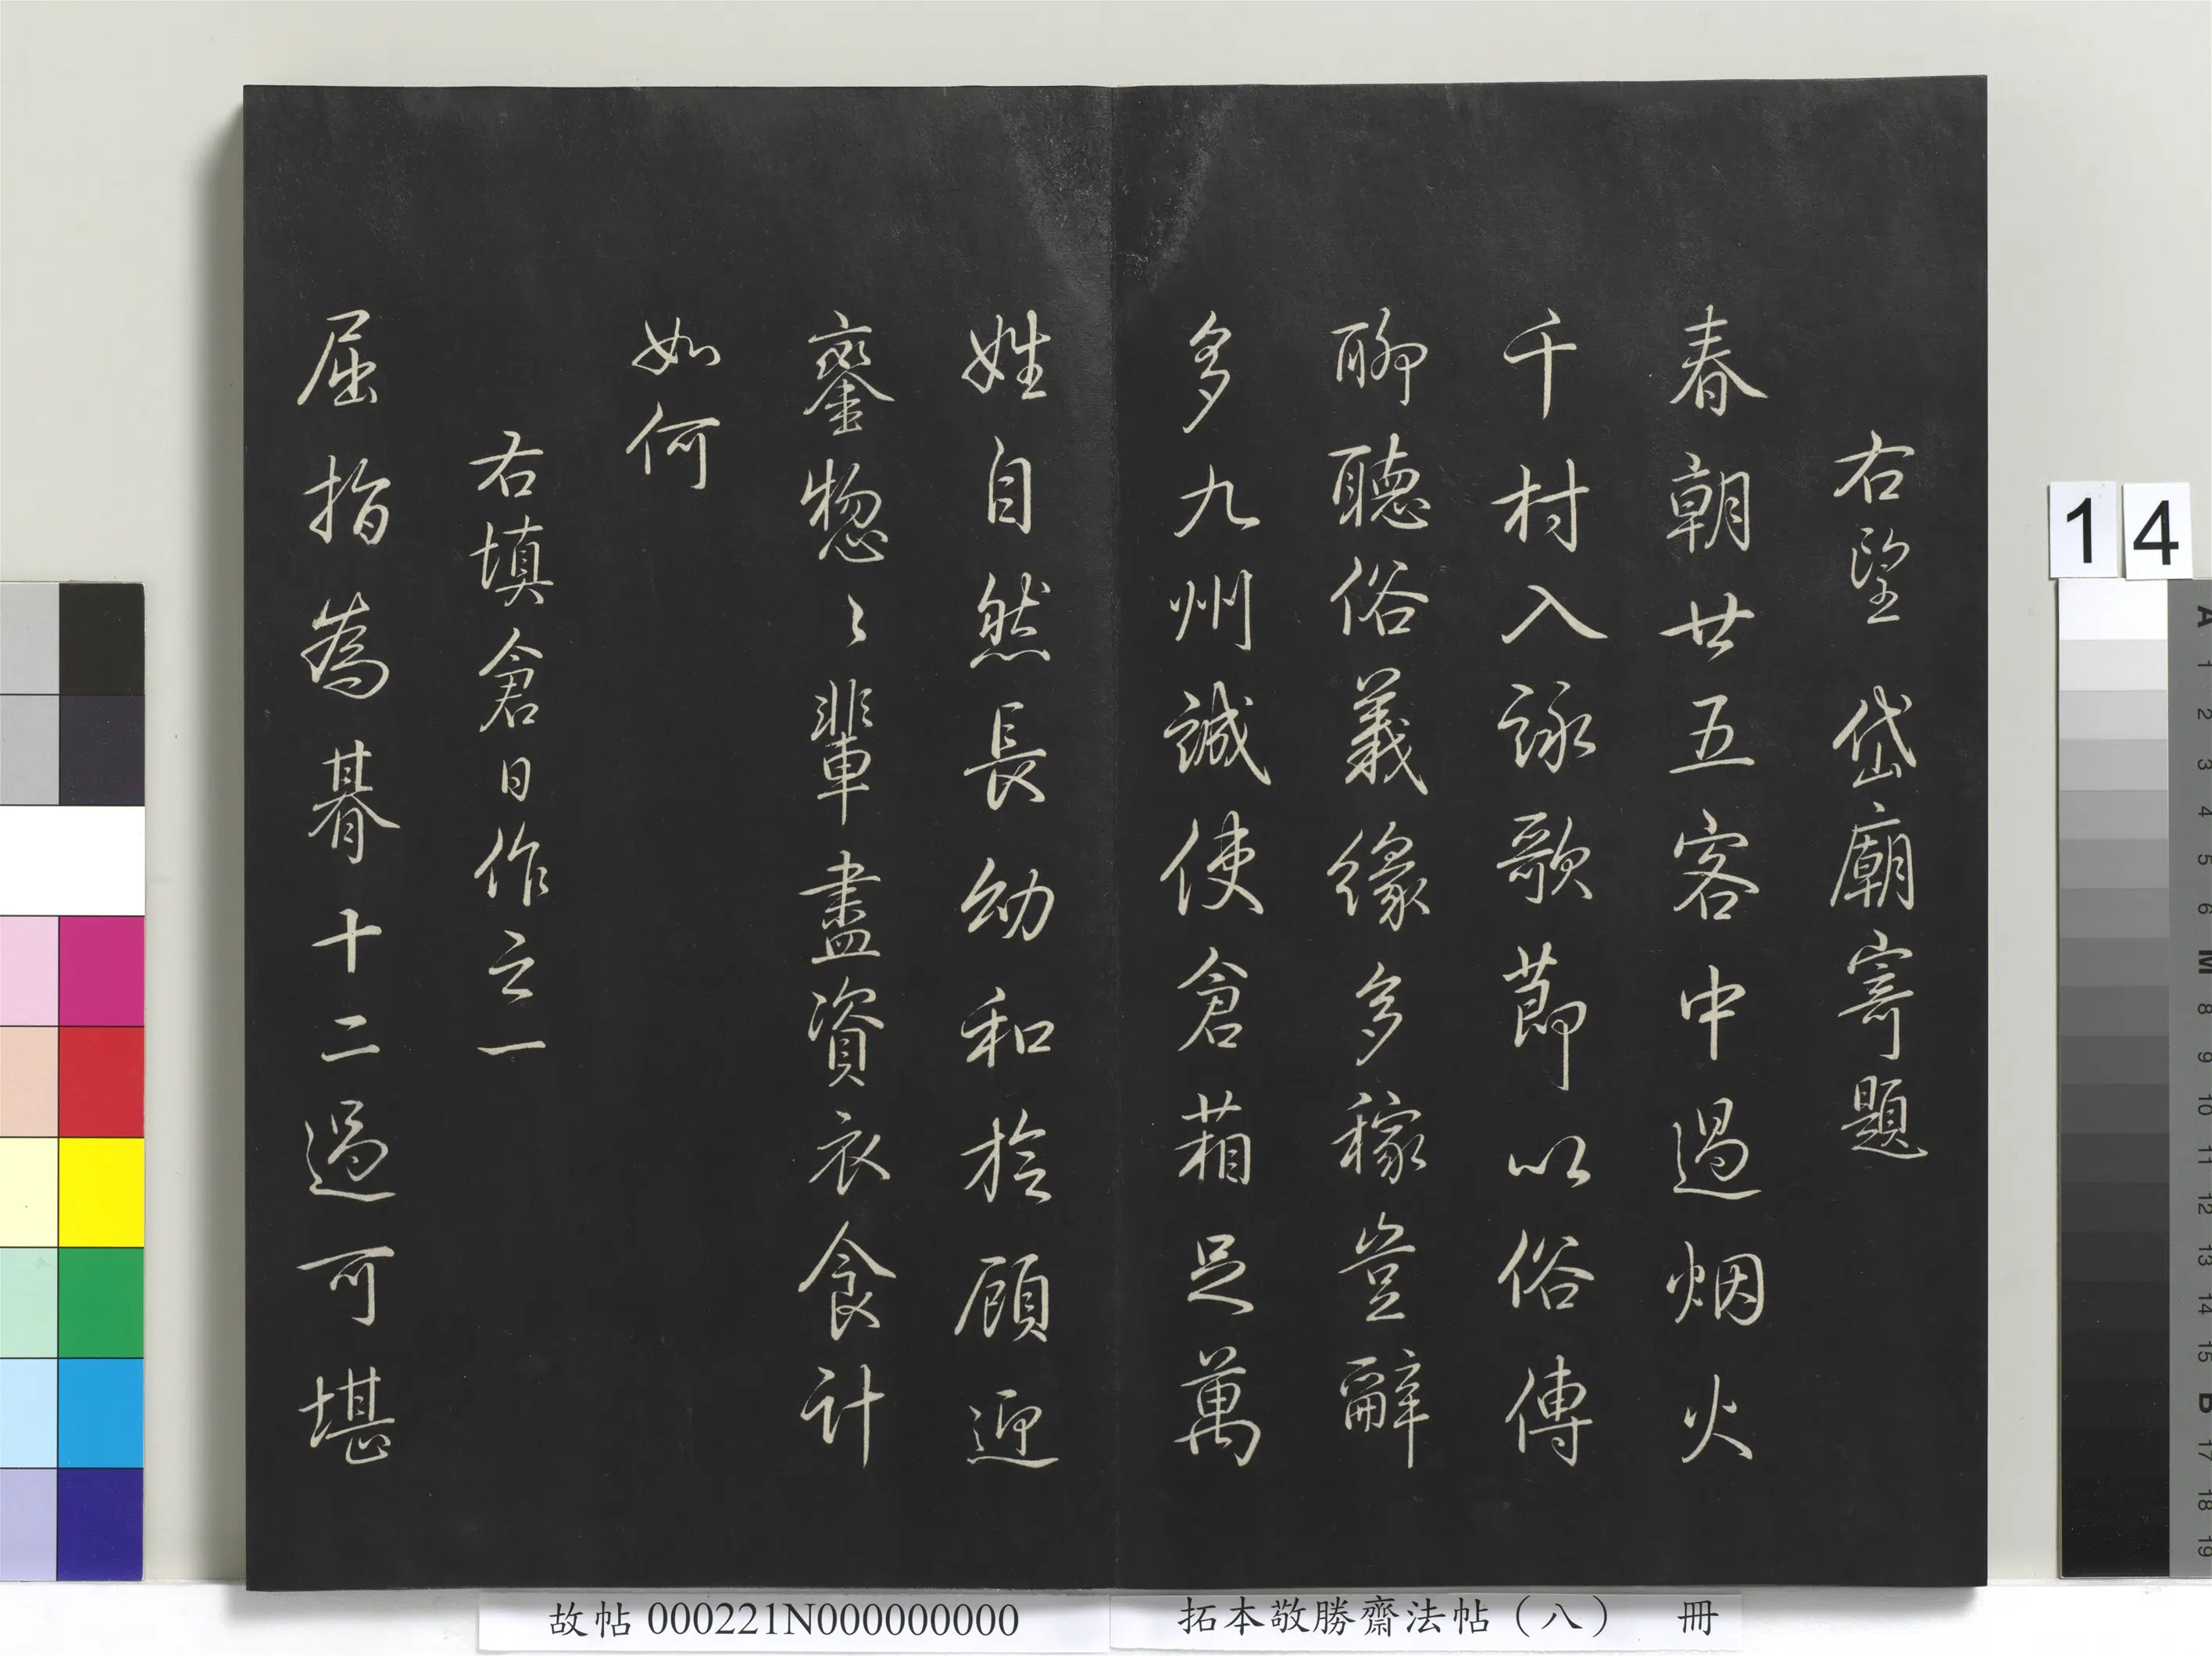 右望　岱廟寄題
春朝廿五客中過烟火
千村入詠歌節以俗傳
聊聽俗義緣多稼豈辭
多九州誠使倉箱足萬
姓自然長幼和於顧迎
鑾惣〻輩盡資衣食計
如何
右填倉日作之一
屈指為碁十二過可堪
14
故帖 000221N000000000
拓本敬勝齋法帖（八）　冊
A 1 2 3 4 5 6 M 8 9 10 11 12 13 14 15 B 17 18 19